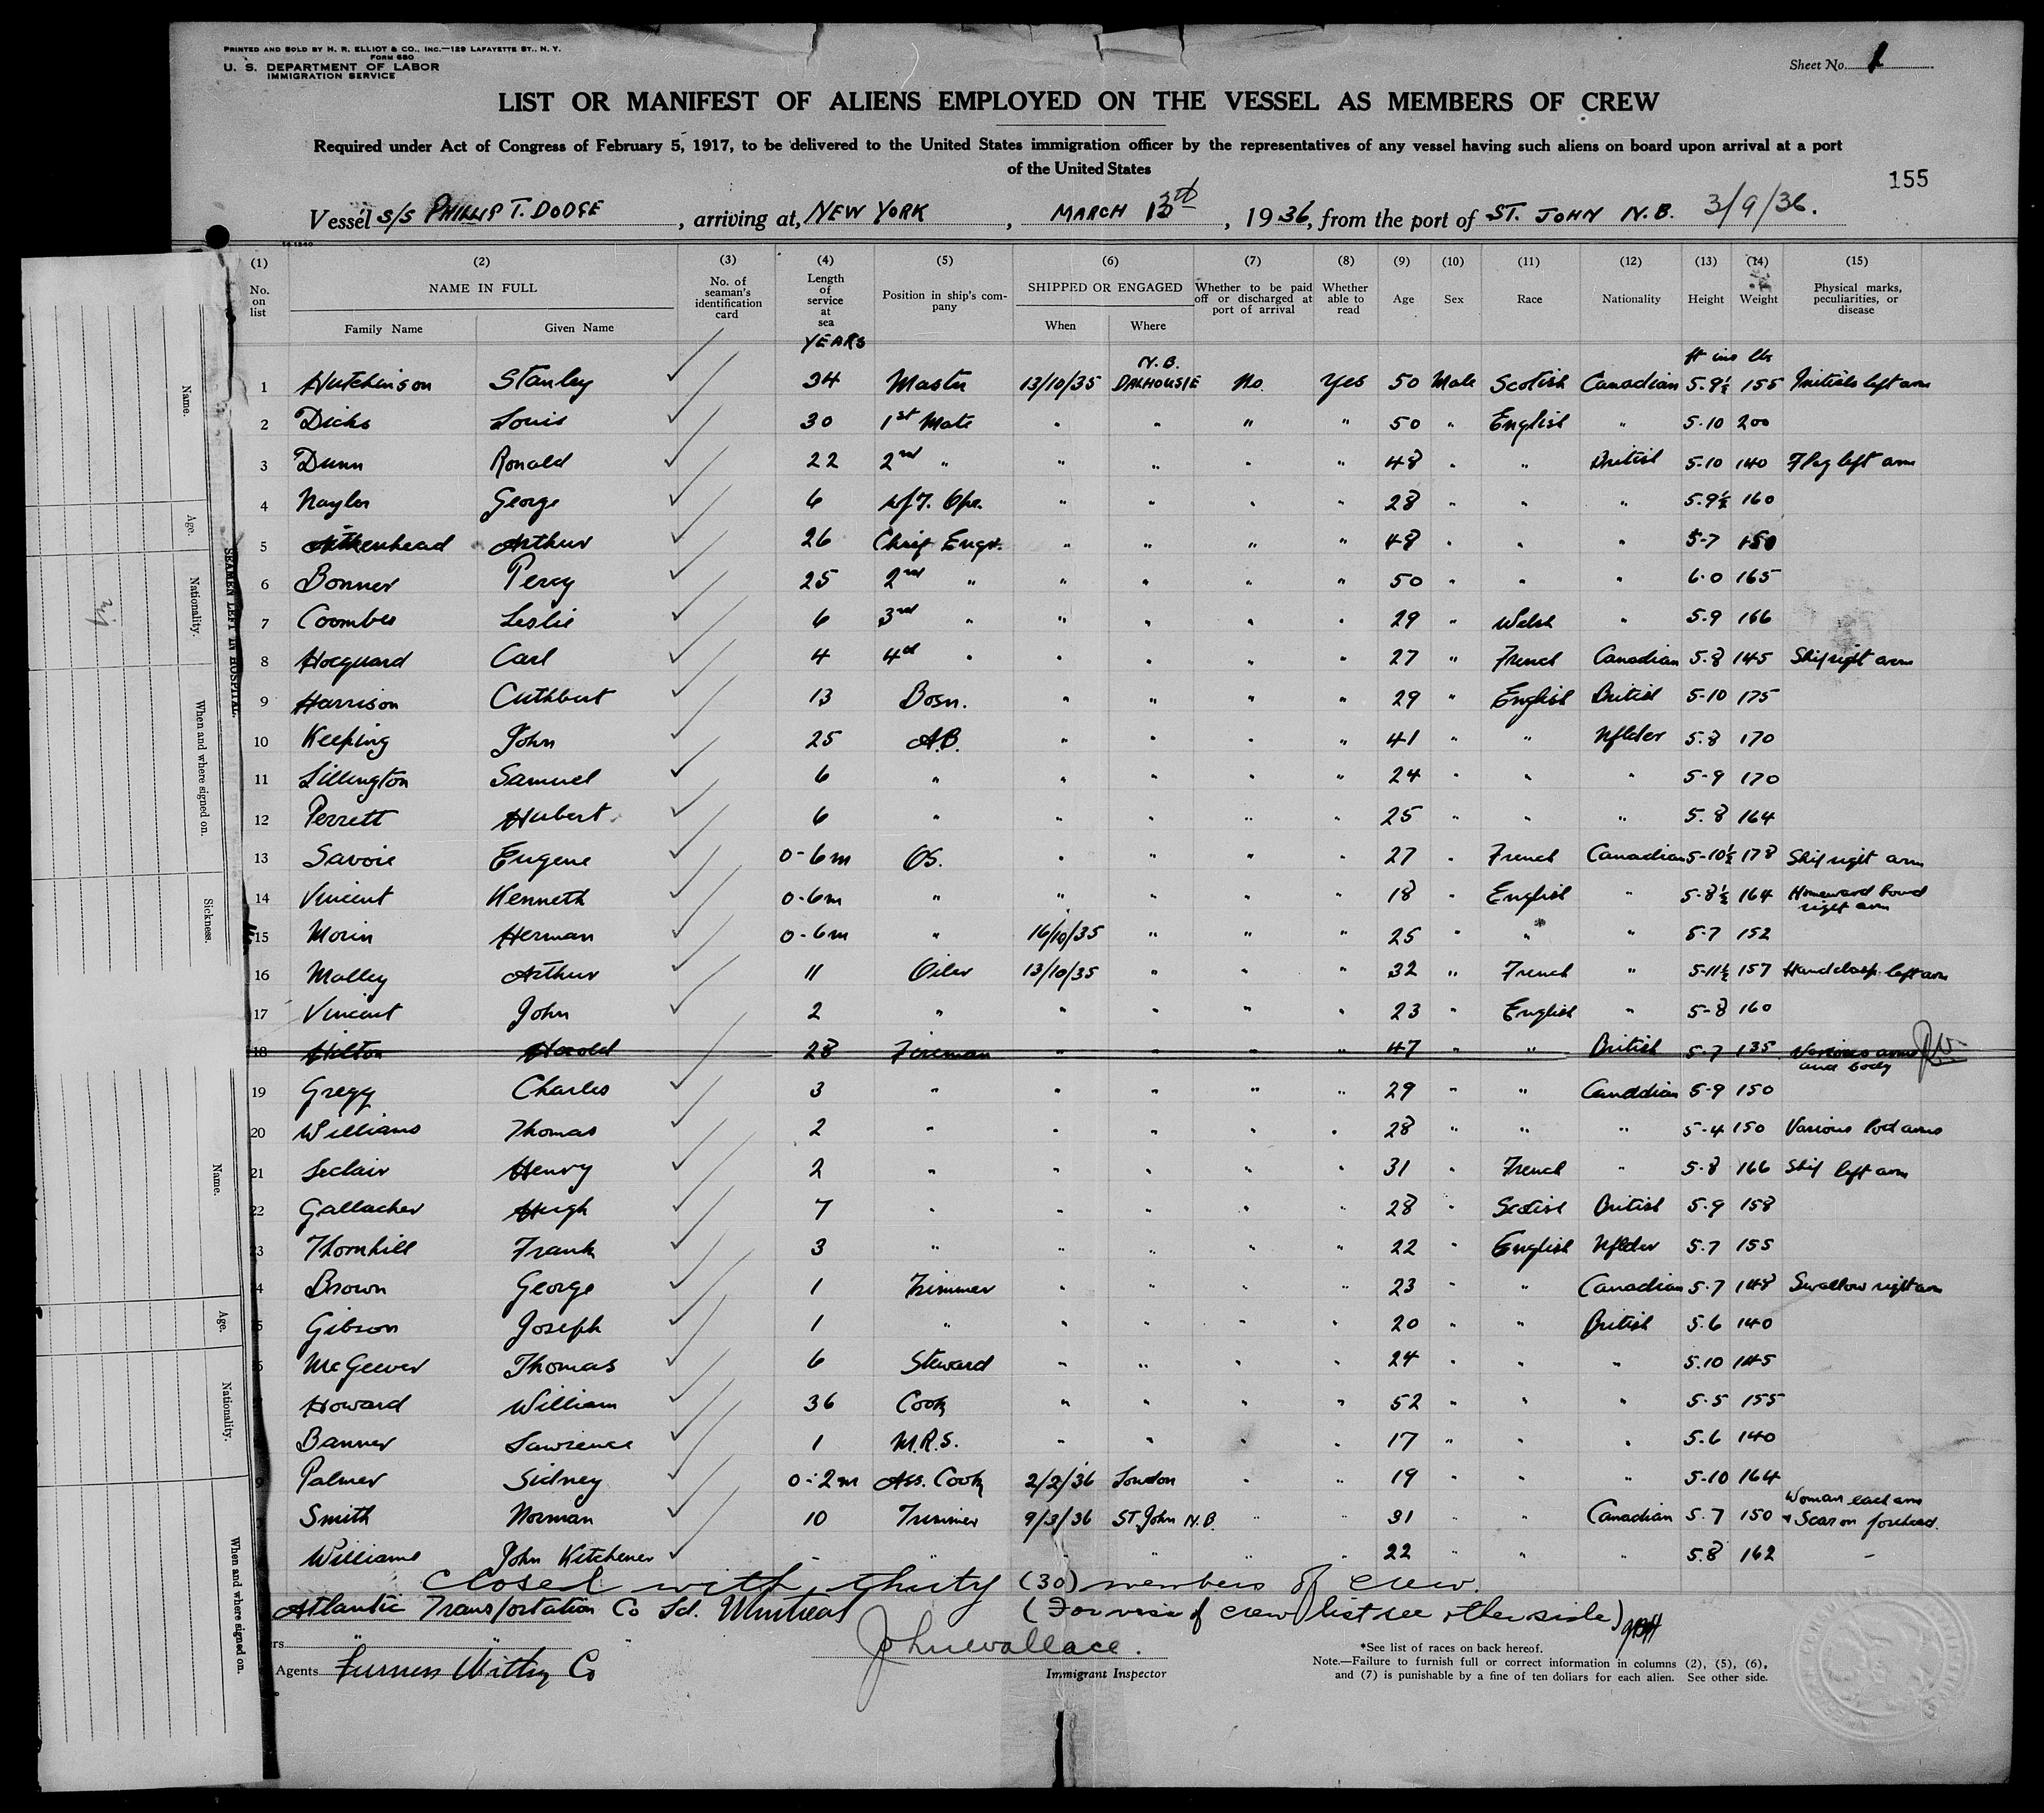 PRINTED AND SOLD BY H. R. ELLIOT & CO., INC.—129 LAFAYETTE ST., N. Y.
FORM 680
U. S. DEPARTMENT OF LABOR
IMMIGRATION SERVICE
Sheet No. 1
LIST OR MANIFEST OF ALIENS EMPLOYED ON THE VESSEL AS MEMBERS OF CREW
Required under Act of Congress of February 5, 1917, to be delivered to the United States immigration officer by the representatives of any vessel having such aliens on board upon arrival at a port
of the United States
155
Vessel S/S PHILLIP T. DODGE, arriving at, NEW YORK, MARCH 13th, 1936, from the port of ST. JOHN N.B. 3/9/36.
(1) (2) (3) (4) (5) (6) (7) (8) (9) (10) (11) (12) (13) (14) (15)
No. on list NAME IN FULL No. of seaman's identification card Length of service at sea Position in ship's company SHIPPED OR ENGAGED Whether to be paid off or discharged at port of arrival Whether able to read Age Sex Race Nationality Height Weight Physical marks, peculiarities, or disease
Family Name Given Name When Where
YEARS
N.B. ft ins lbs
1 Hutchinson Stanley 34 Master 13/10/35 DALHOUSIE No. Yes 50 Male Scotish Canadian 5.9½ 155 Initials left arm
2 Dicks Louis 30 1st Mate " " " " 50 " English " 5.10 200
3 Dunn Ronald 22 2nd " " " " " 48 " " British 5.10 140 Flag left arm
4 Naylor George 6 W/T. Opr. " " " " 28 " " " 5.9½ 160
5 Aitkenhead Arthur 26 Chief Engr. " " " " 48 " " " 5-7 150
6 Bonner Percy 25 2nd " " " " " 50 " " " 6.0 165
7 Coombes Leslie 6 3rd " " " " " 29 " Welsh " 5.9 166
8 Hocquard Carl 4 4th " " " " " 27 " French Canadian 5.8 145 Ship right arm
9 Harrison Cuthbert 13 Bosn. " " " " 29 " English British 5-10 175
10 Keeping John 25 A.B. " " " " 41 " " Nflder 5.8 170
11 Lillington Samuel 6 " " " " " 24 " " " 5-9 170
12 Perrett Hubert 6 " " " " " 25 " " " 5.8 164
13 Savoie Eugene 0-6m OS. " " " " 27 " French Canadian 5-10½ 178 Ship right arm
14 Vincent Kenneth 0-6m " " " " " 18 " English " 5-8½ 164 Homeward bound
right arm
15 Morin Herman 0-6m " 16/10/35 " " " 25 " " " 5-7 152
16 Malley Arthur 11 Oiler 13/10/35 " " " 32 " French " 5-11½ 157 Handclasp left arm
17 Vincent John 2 " " " " " 23 " English " 5-8 160
18 Hilton Harold 28 Fireman " " " " 47 " " British 5-7 135 Various arms
and body
19 Gregg Charles 3 " " " " " 29 " " Canadian 5-9 150
20 Williams Thomas 2 " " " " " 28 " " " 5-4 150 Various both arms
21 Leclair Henry 2 " " " " " 31 " French " 5.8 166 Ship left arm
22 Gallacher Hugh 7 " " " " " 28 " Scotish British 5.9 158
23 Thornhill Frank 3 " " " " " 22 " English Nflder 5.7 155
4 Brown George 1 Trimmer " " " " 23 " " Canadian 5.7 148 Swallow right arm
5 Gibson Joseph 1 " " " " " 20 " " British 5.6 140
6 McGeever Thomas 6 Steward " " " " 24 " " " 5.10 145
Howard William 36 Cook " " " " 52 " " " 5.5 155
Banner Lawrence 1 M.R.S. " " " " 17 " " " 5.6 140
9 Palmer Sidney 0-2m Ass. Cook 2/2/36 London " " 19 " " " 5-10 164
Smith Norman 10 Trimmer 9/3/36 ST John N.B. " " 31 " " Canadian 5.7 150 Woman each arm
+ Scar on forehead.
Williams John Kitchener - " " " " " 22 " " " 5.8 162 -
Closed with thirty (30) members of crew.
Atlantic Transportation Co Ld. Montreal
(For visa of crew list see other side)
John Wallace.
Immigrant Inspector
Agents Furness Withy Co
*See list of races on back hereof.
Note.—Failure to furnish full or correct information in columns (2), (5), (6),
and (7) is punishable by a fine of ten dollars for each alien. See other side.
SEAMEN LEFT IN HOSPITAL.
Name.
Age.
Nationality.
When and where signed on.
Sickness.
Name.
Age.
Nationality.
When and where signed on.